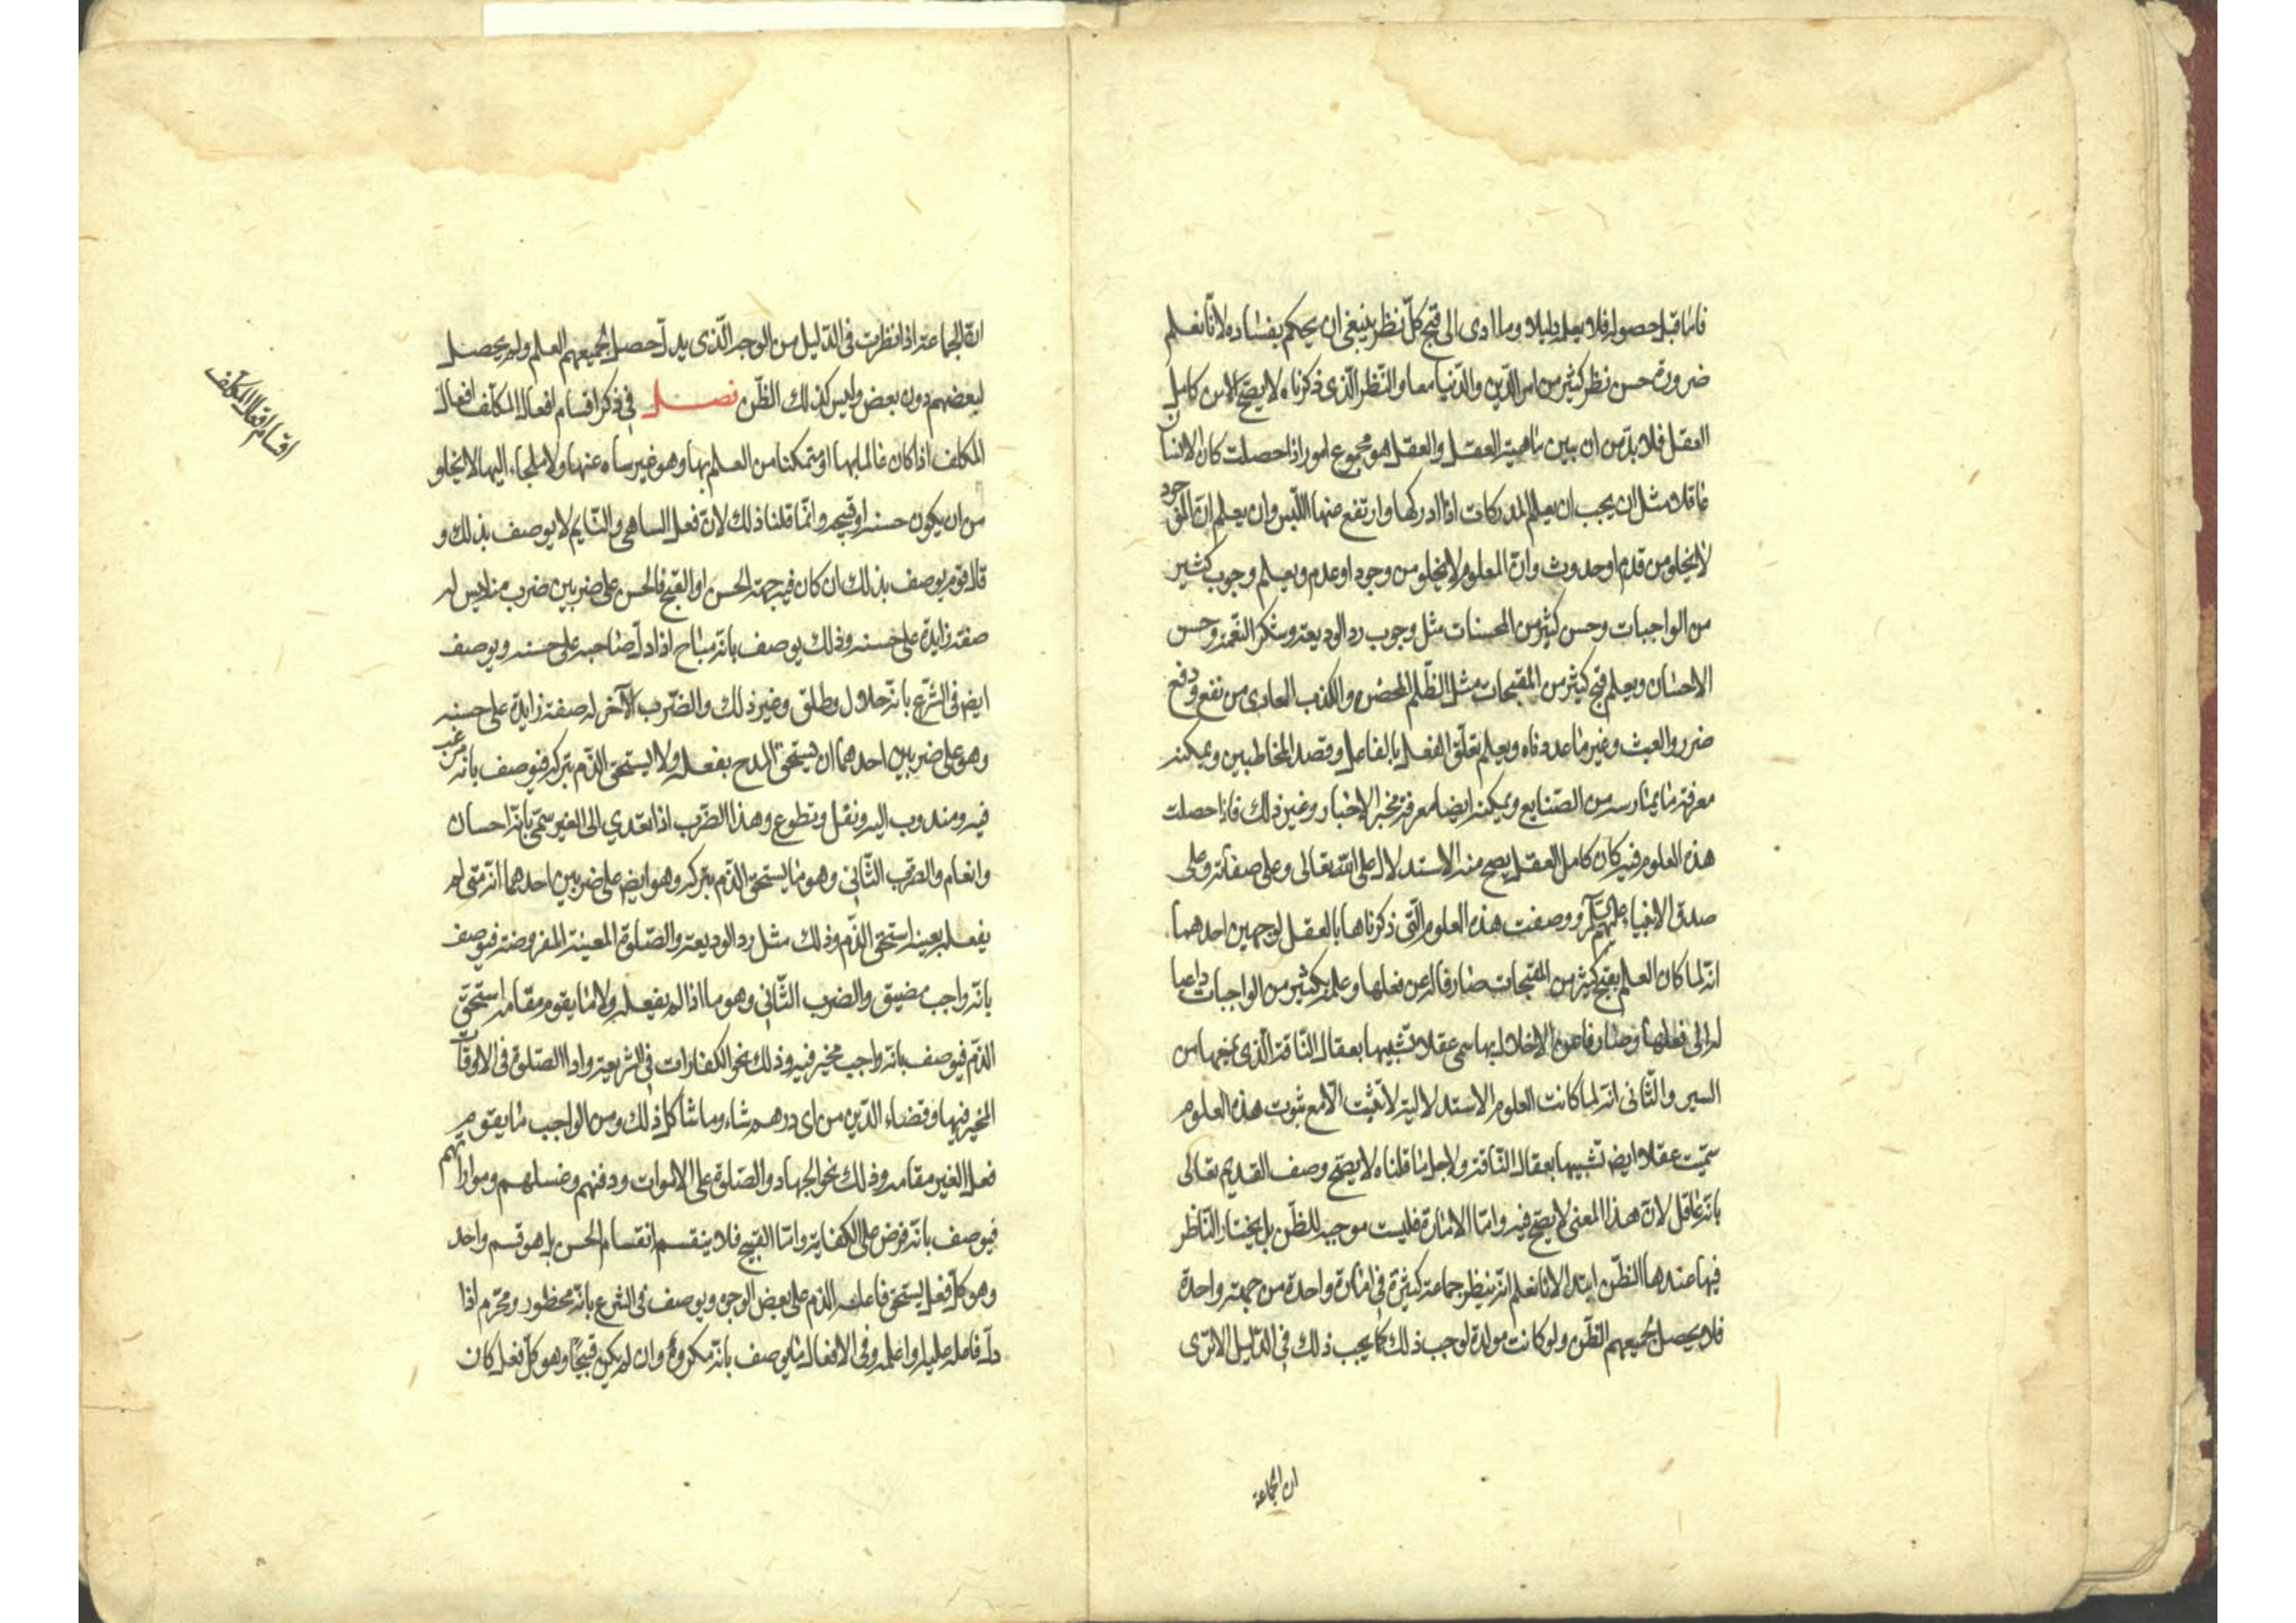 فاما قبل حصوله فلا يعلم دليلا وما ادى الى قبح كل نظر ينبغي ان يحكم بفساده لانا نعلم
ضرورة حسن نظر كثير من امر الدين والدنيا معا والنظر الذى ذكرناه لا يصح الا من كامل
العقل فلا بد من ان يبين ماهية العقل والعقل هو مجموع امور اذا حصلت كان الانسان
عاقلا مثل ان يجب ان يعلم المدركات اذا ادركها وارتفع عنها اللبس وان يعلم ان الموجود
لا يخلو من قدم او حدوث وان المعلوم لا يخلو من وجود او عدم ويعلم وجوب كثير
من الواجبات وحسن كثير من المحسنات مثل وجوب رد الوديعة وشكر النعمة وحسن
الاحسان ويعلم قبح كثير من المقبحات مثل الظلم المحض والكذب العارى من نفع ودفع
ضرر والعبث وغير ما عددناه ويعلم تعلق الفعل بالفاعل وقصد المخاطبين ويمكنه
معرفة ما يمارسه من الصنايع ويمكنه ايضا معرفة مخبر الاخبار وغير ذلك فاذا حصلت
هذه العلوم فيه كان كامل العقل يصح منه الاستدلال على الله تعالى وعلى صفاته وعلى
صدق الانبياء عليهم السلام ووصفت هذه العلوم التى ذكرناها بالعقل لوجهين احدهما
انه لما كان العلم بقبح كثير من المقبحات صارفا له عن فعلها وعلمه بكثير من الواجبات داعيا
له الى فعلها وصارفا عن الاخلال بها سمى عقلا تشبيها بعقال الناقة الذى يمنعها من
السير والثانى انه لما كانت العلوم الاستدلالية لا تثبت الا مع ثبوت هذه العلوم
سميت عقلا ايض تشبيها بعقال الناقة ولاجل ما قلناه لا يصح وصف القديم تعالى
بانه عاقل لان هذا المعنى لا يصح فيه واما الامارة فليست موجبة للظن بل يختار الناظر
فيها عندها الظن ابتدا لانا نعلم انه ينظر جماعة كثيرة فى امارة واحدة من جهة واحدة
فلا يحصل لجميعهم الظن ولو كانت مولدة لوجب ذلك كما يجب ذلك فى الدليل الا ترى
ان الجماعة
ان الجماعة اذا نظرت فى الدليل من الوجه الذى يدل حصل لجميعهم العلم ولم يحصل
لبعضهم دون بعض وليس كذلك الظن فصل فى ذكر اقسام افعال المكلف افعال
المكلف اذا كان عالما بها او متمكنا من العلم بها وهو غير ساه عنها ولا ملجاء اليها لا يخلو
من ان يكون حسنة او قبيحة وانما قلنا ذلك لان فعل الساهى والنايم لا يوصف بذلك و
قال قوم يوصف بذلك ان كان فيه جهة الحسن او القبح فالحسن على ضربين ضرب منه ليس له
صفة زايدة على حسنه وذلك يوصف بانه مباح اذا دل صاحبه على حسنه ويوصف
ايض فى الشرع بانه حلال وطلق وغير ذلك والضرب الآخر له صفة زايدة على حسنه
وهو على ضربين احدهما ان يستحق المدح بفعله ولا يستحق الذم بتركه فيوصف بانه مرغب
فيه ومندوب اليه ونفل وتطوع وهذا الضرب اذا تعدي الى الغير سمى بانه احسان
وانعام والضرب الثانى وهو ما يستحق الذم بتركه وهو ايض على ضربين احدهما انه متى لم
يفعله بعينه استحق الذم وذلك مثل رد الوديعة والصلوة المعينة المفروضة فيوصف
بانه واجب مضيق والضرب الثانى وهو ما اذا لم يفعله ولا ما يقوم مقامه استحق
الذم فيوصف بانه واجب مخير فيه وذلك نحو الكفارات فى الشريعة واداا الصلوة فى الاوقات
المخير فيها وقضاء الدين من اى درهم شاء وما شاكل ذلك ومن الواجب ما يقوم
فعل الغير مقامه وذلك نحو الجهاد والصلوة على الاموات ودفنهم وغسلهم ومواراتهم
فيوصف بانه فرض على الكفاية واما القبيح فلا ينقسم انقسام الحسن بل هو قسم واحد
وهو كل فعل يستحق فاعله الذم على بعض الوجوه ويوصف فى الشرع بانه محظور ومحرم اذا
دل فاعله عليه او اعلمه وفى الافعال ما يوصف بانه مكروه وان لم يكن قبيحا وهو كل فعل كان
اقسام افعال المكلف